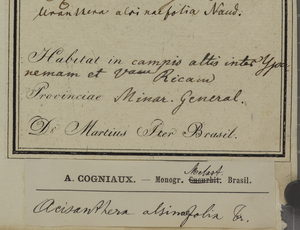 Uranthera alsinaefolia Naud.
Habitat in campis altis inter Ypa-
nemam et Ricam
Provinciae Minar. General.
Dr Martius Iter Brasil.
Melast.
A. COGNIAUX. — Monogr. Cucurbit. Brasil.
Acisanthera alsinaefolia Tr.